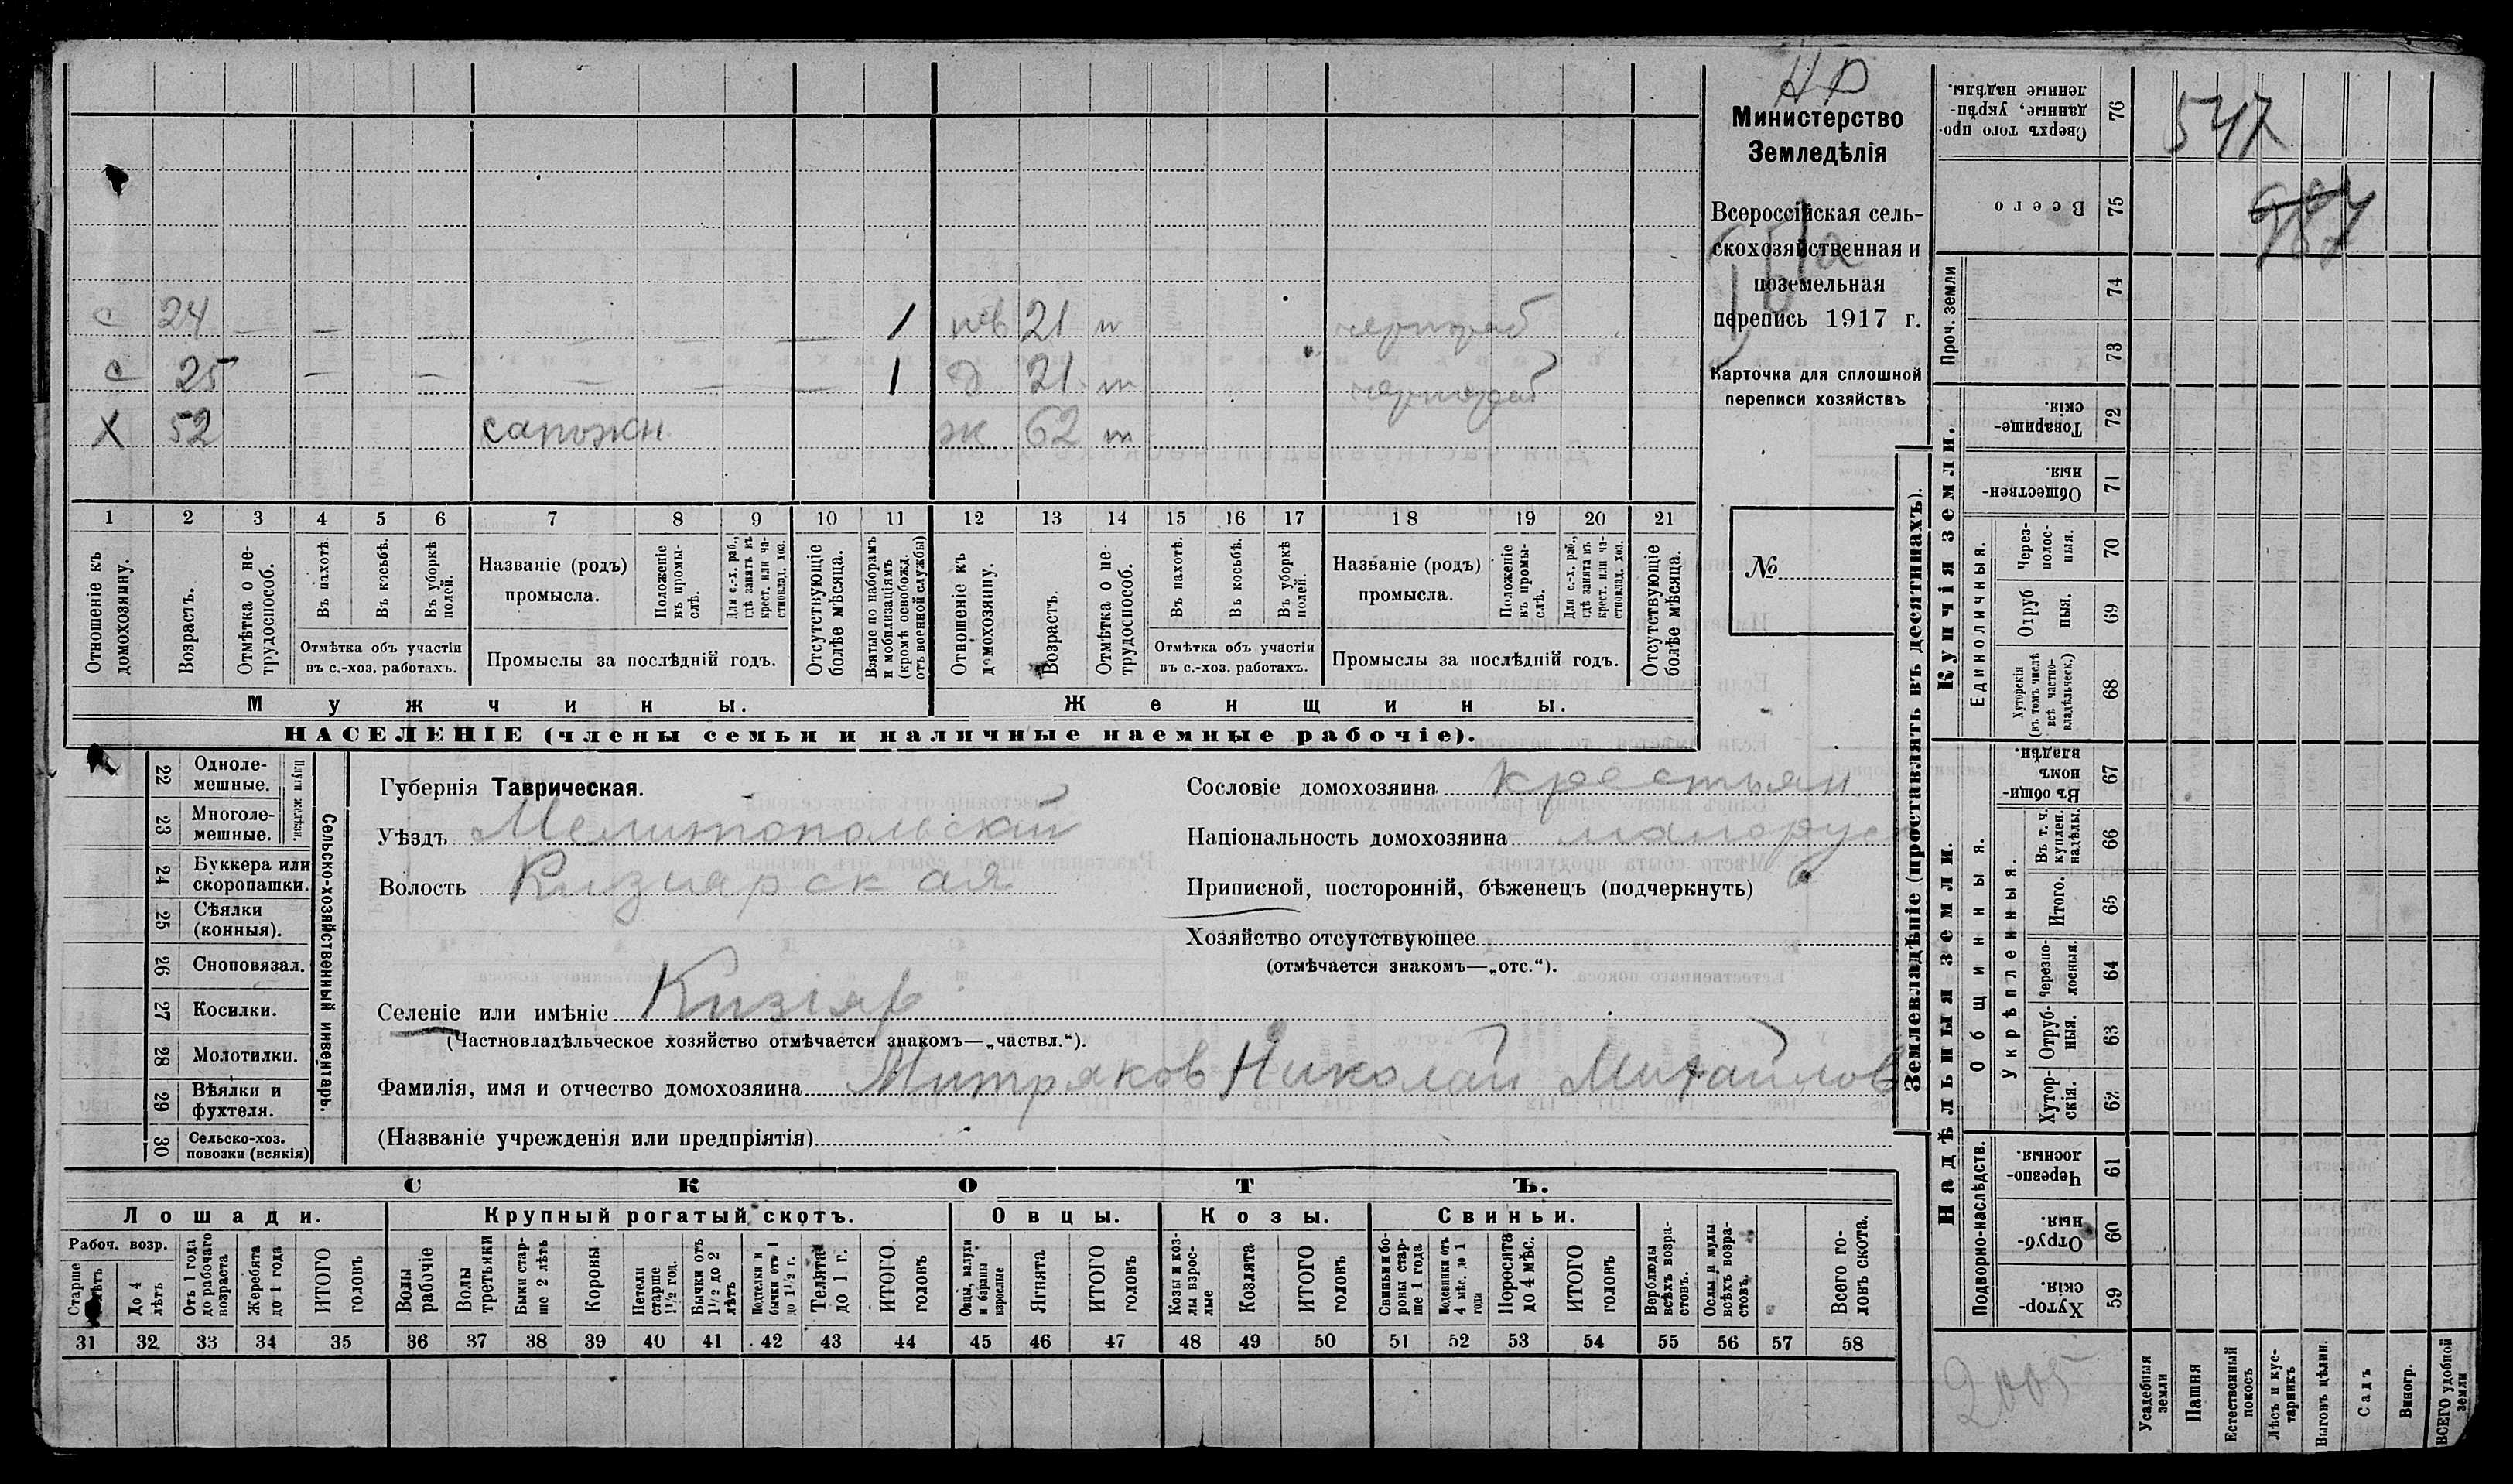 НР
Министерство
Земледѣлія
Всероссійская сель-
скохозяйственная и
поземельная
перепись 1917 г.
Карточка для сплошной
переписи хозяйствъ
№
с 24 — — — — — — 1 21 чернораб
с 25 — — — — — 1 Д 21 чернораб
Х 52 сапожн ж 62
1 2 3 4 5 6 7 8 9 10 11 12 13 14 15 16 17 18 19 20 21
Отношеніе къ домохозяину.
Возрастъ.
Отмѣтка о не-трудоспособ.
Въ пахотѣ.
Въ косьбѣ.
Въ уборкѣ полей.
Отмѣтка объ участіи
въ с.-хоз. работахъ.
Названіе (родъ)
промысла.
Положеніе въ промы-слѣ.
Для с.-х. раб., гдѣ занятъ въ крест. или ча-стновлад. хоз.
Промыслы за послѣдній годъ.
Отсутствующіе болѣе мѣсяца.
Взятые по наборамъ и мобилизаціямъ (кромѣ освобожд. отъ военной службы)
Отношеніе къ домохозяину.
Возрастъ.
Отмѣтка о не-трудоспособ.
Въ пахотѣ.
Въ косьбѣ.
Въ уборкѣ полей.
Отмѣтка объ участіи
въ с.-хоз. работахъ.
Названіе (родъ)
промысла.
Положеніе въ промы-слѣ.
Для с.-х. раб., гдѣ занята въ крест. или ча-стновлад. хоз.
Промыслы за послѣдній годъ.
Отсутствующіе болѣе мѣсяца.
Мужчины.
Женщины.
НАСЕЛЕНІЕ (члены семьи и наличные наемные рабочіе).
Сельско-хозяйственный инвентарь.
Плуги желѣзн.
22 Одноле-
мешные.
23 Многоле-
мешные.
24 Буккера или
скоропашки.
25 Сѣялки
(конныя).
26 Сноповязал.
27 Косилки.
28 Молотилки.
29 Вѣялки и
фухтеля.
30 Сельско-хоз.
повозки (всякія)
Губернія Таврическая.
Уѣздъ Мелитопольский
Волость Кизиярская
Селеніе или имѣніе Кизіяр
(Частновладѣльческое хозяйство отмѣчается знакомъ—„частвл.“).
Фамилія, имя и отчество домохозяина Митряков Николай Михайлов
(Названіе учрежденія или предпріятія)
Сословіе домохозяина крестьян.
Національность домохозяина малорус
Приписной, посторонній, бѣженецъ (подчеркнуть)
Хозяйство отсутствующее
(отмѣчается знакомъ—„отс.“).
СКОТЪ.
Лошади.
Крупный рогатый скотъ.
Овцы.
Козы.
Свиньи.
Рабоч. возр.
Старше лѣтъ
До 4 лѣтъ
Отъ 1 года до рабочаго возраста
Жеребята до 1 года
ИТОГО головъ
Волы рабочіе
Волы третьяки
Быки стар-ше 2 лѣтъ
Коровы
Петели старше 1½ год.
Бычки отъ 1½ до 2 лѣтъ
Подтелки и бычки отъ 1 до 1½ г.
Телята до 1 г.
ИТОГО головъ
Овцы, валухи и бараны взрослые
Ягнята
ИТОГО головъ
Козы и коз-лы взрос-лые
Козлята
ИТОГО головъ
Свиньи и бо-ровы стар-ше 1 года
Подсвинки отъ 4 мѣс. до 1 года
Поросята до 4 мѣс.
ИТОГО головъ
Верблюды всѣхъ возра-стовъ.
Ослы и мулы всѣхъ возра-стовъ.
Всего го-ловъ скота.
31 32 33 34 35 36 37 38 39 40 41 42 43 44 45 46 47 48 49 50 51 52 53 54 55 56 57 58
Землевладѣніе (проставлять въ десятинахъ).
Купчія земли.
Надѣльныя земли.
Сверхъ того про-данные, укрѣп-ленные надѣлы. 76
547
Всего 75
987
Проч. земли
74
73
Товарище-скія. 72
Обществен-ныя. 71
Единоличныя.
Через-полос-ныя. 70
Отруб ныя. 69
Хуторскія (въ томъ числѣ всѣ частно-владѣльческ.) 68
Въ общин-номъ владѣн. 67
Общинныя.
Укрѣпленныя.
Въ т. ч. куплен. надѣлы. 66
Итого. 65
Черезпо-лосныя. 64
Отруб-ныя. 63
Хутор-скія. 62
Подворно-наслѣдств.
Черезпо-лосныя. 61
Отруб-ныя. 60
Хутор-скія. 59
2005
Усадебныя земли
Пашня
Естественный покосъ
Лѣсъ и кус-тарникъ
Выгонъ цѣлин.
Садъ
Виногр.
ВСЕГО удобной земли